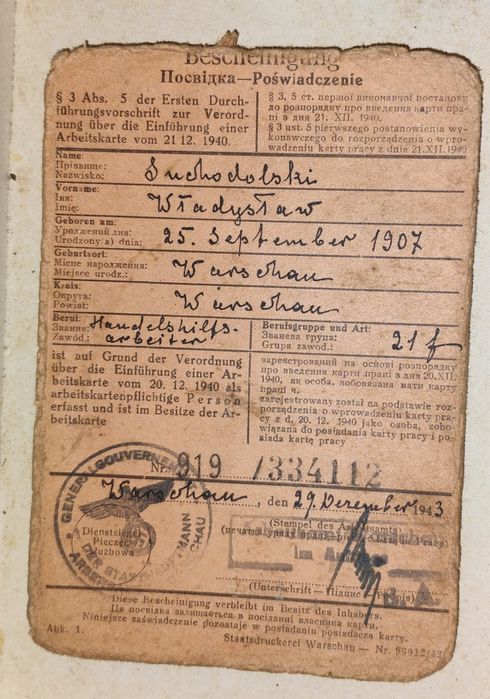 Bescheinigung
Посвідка—Poświadczenie
§ 3 Abs. 5 der Ersten Durch-
führungsvorschrift zur Verord-
nung über die Einführung einer
Arbeitskarte vom 21 12. 1940.
§ 3, 5 ст. першої виконавчої постанови
до розпорядку про введення карти пра-
ці в дня 21. XII. 1940.
§ 3 ust. 5 pierwszego postanowienia wy-
konawczego do rozporządzenia o wpro-
wadzeniu karty pracy z dnia 21.XII.1940
Name:
Прізвище:
Nazwisko:
Suchodolski
Vorname:
Імя:
Imię:
Władysław
Geboren am:
Уроджений дня:
Urodzony(a) dnia:
25. September 1907
Geburtsort:
Місце народження:
Miejsce urodz.:
Warschau
Kreis:
Округа:
Powiat:
Warschau
Beruf:
Звання:
Zawód:
Handelshilfs-
arbeiter
Berufsgruppe und Art:
Званева група:
Grupa zawod.:
21 f
ist auf Grund der Verordnung
über die Einführung einer Ar-
beitskarte vom 20. 12. 1940 als
arbeitskartenpflichtige Person
erfasst und ist im Besitze der Ar-
beitskarte
зареєстрований на основі розпорядку
про введення карти праці в дня 20.XII.
1940, як особа, зобовязана мати карту
праці ч.
zarejestrowany został na podstawie roz-
porządzenia o wprowadzeniu karty pra-
cy z d. 20. 12. 1940 jako osoba, zobo-
wiązana do posiadania karty pracy i po-
siada kartę pracy
Nr. 919 /334112
Warschau, den 29. Dezember 1943
GENERALGOUVERNEMENT
Dienstsiegel
Pieczęć
służbowa
DER STA
MANN
SCHAU
ARBEITS
(Stempel des Arbeitsamts)
Im Au
(Unterschrift—Підпис—
Diese Bescheinigung verbleibt im Besitz des Inhabers.
Ця посвідка залишається в посіданні власника карти.
Niniejsze zaświadczenie pozostaje w posiadaniu posiadacza karty.
Abk. 1.
Staatsdruckerei Warschau — Nr. 96912/43